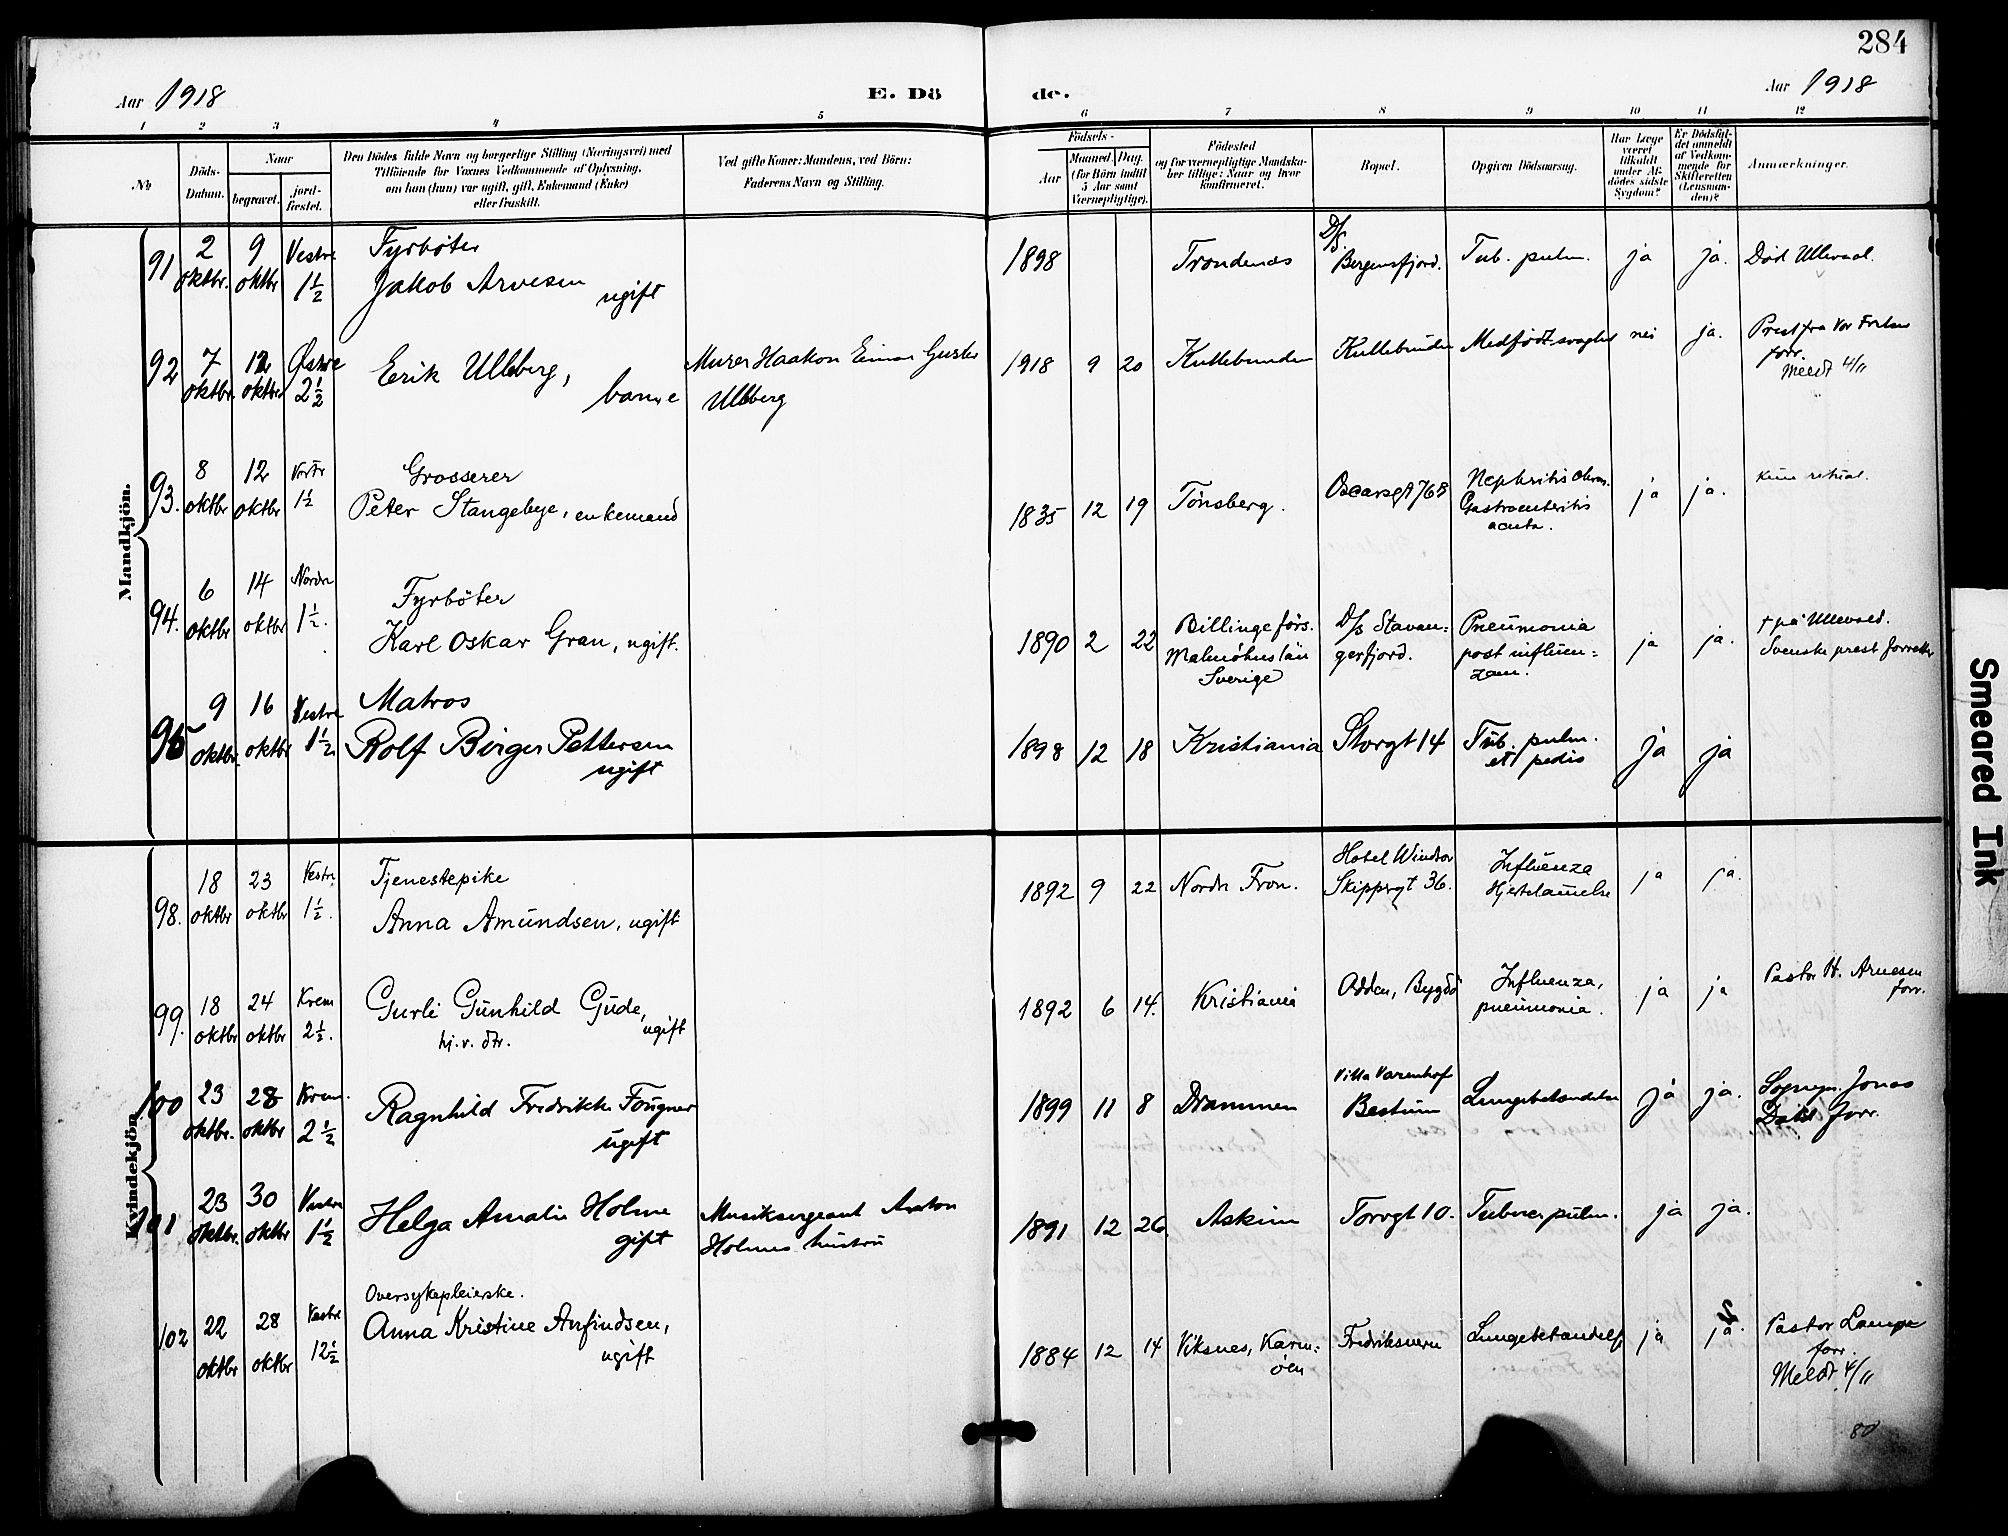 284
Aar 1918
E. Dö
de.
Aar 1918
1 2 3 4 5 6 7 8 9 10 11 12
No
Döds-
Datum.
Naar
begravet.
jord-
fæstet.
Den Dödes fulde Navn og borgerlige Stilling (Næringsvei) med
Tilföiende for Voxnes Vedkommende af Oplysning,
om han (hun) var ugift, gift, Enkemand (Enke)
eller fraskilt.
Ved gifte Koner: Mandens, ved Börn:
Faderens Navn og Stilling.
Födsels-
Aar
Maaned. Dag.
(for Börn indtil
5 Aar samt
Værnepligtige).
Födested
og for værnepligtige Mandska-
ber tillige: Naar og hvor
konfirmeret.
Bopæl.
Opgiven Dödsaarsag.
Har Læge
været
tilkaldt
under Af-
dödes sidste
Sygdom?
Er Dödsfal-
det anmeldt
af Vedkom-
mende for
Skifteretten
(Lensman-
den)?
Anmærkninger.
Mandkjön.
91
2
oktbr.
9
oktbr
Vestre
1 1/2
Fyrböter
Jakob Arvesen
ugift
1898
Trondenes
D/S.
Bergensfjord.
Tub. pulm.
ja
ja.
Död Ullevaal.
92
7
oktbr.
12
oktbr
Østre
2 1/2
Erik Ullberg,
barn
Murer Haakon Einar
Ullberg
1918 9 20
Kullebunden
Kullebunden
Medfödt svaghet
nei
ja.
Prest fra Vor Frelser
forr.
Meldt 4/11
93.
8
oktbr
12
oktbr
Vestr
1 1/2
Grosserer
Peter Stangebye, enkemand
1835 12 19
Tönsberg.
Oscarsgt 76B
Nephritis chron.
Gastroenteritis
acuta.
ja
ja.
Kun ritual.
94.
6
oktbr
14
oktbr
Nordre
1 1/2.
Fyrböter
Karl Oskar Gran, ugift.
1890 2 22
Billinge förs.
Malmöhuslän
Sverige
D/S Stavan=
gerfjord.
Pneumonia
post influen=
zam.
ja
ja.
† på Ullevaal.
Svenske prest forrettet
95
9
oktbr.
16
oktbr
Vestre
1 1/2
Matros
Rolf Birger Pettersen
ugift
1898 12 18
Kristiania
Storgt 14
Tub. pulm.
et pedis
ja
ja
Kvindekjön.
98.
18
oktbr
23
oktbr
Vestre
1 1/2.
Tjenestepike
Anna Amundsen, ugift
1892 9 22
Nordre Fron.
Hotel Windsor
Skippergt 36.
Influenza
Hjertelammelse
ja
ja.
99.
18
oktbr
24
oktbr
Krem
2 1/2.
Gurli Gunhild Gude,
ugift
hj.v. dtr.
1892 6 14.
Kristiania
Odden, Bygdö
Influenza,
pneumonia.
ja
ja
Pastor H. Arnesen
forr.
100
23
oktbr.
28
oktbr
Krem.
2 1/2
Ragnhild Fredrikke Fougner
ugift
1899 11 8
Drammen
Villa Varenhof
Bestum
Lungebetændelse
ja
ja.
Sognepr. Jonas
Dahl forr.
101
23
oktbr.
30
oktbr
Vestre
1 1/2
Helga Amalie Holme
gift
Musiksergeant Anton
Holmes hustru
1891 12 26.
Askim
Torvgt 10.
Tuberc pulm.
ja
ja.
102
22
oktbr
28
oktbr
Vestre
12 1/2
Oversykepleierske.
Anna Kristine Anfindsen,
ugift
1884 12 14
Viksnes, Karm=
öen
Fredriksvern
Lungebetændelse
ja
ja.
Pastor Lampe
forr.
Meldt 4/11
80
Smeared Ink